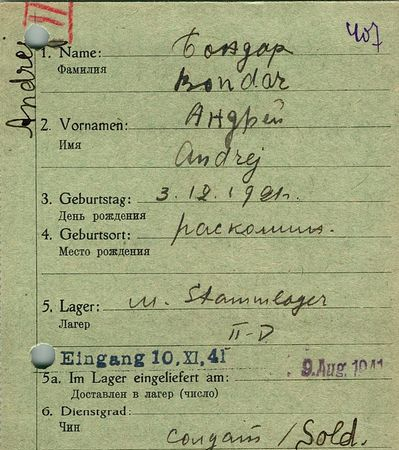 Andrej
II
407
1. Name: Бондар
Фамилия
Bondar
2. Vornamen: Андрей
Имя
Andrej
3. Geburtstag: 3.12.1921г.
День рождения
4. Geburtsort:
Место рождения
5. Lager: M. Stammlager
Лагер
II-D
Eingang 10. XI. 41
9. Aug. 1941
5a. Im Lager eingeliefert am:
Доставлен в лагер (число)
6. Dienstgrad:
Чин
солдат / Sold.